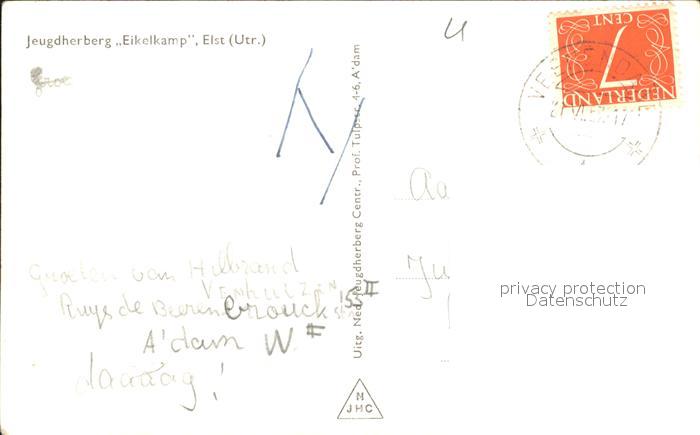 Jeugdherberg „Eikelkamp”, Elst (Utr.)
4
7
CENT
NEDERLAND
Uitg. Ned. Jeugdherberg Centr., Prof. Tulpstr. 4-6, A'dam
Aa
Ju
privacy protection
Datenschutz
Groeten van Hilbrand
VENHUIZEN
Ruys de Beerenbrouck str 55 II
A'dam W. II
daaaag!
N
JHC